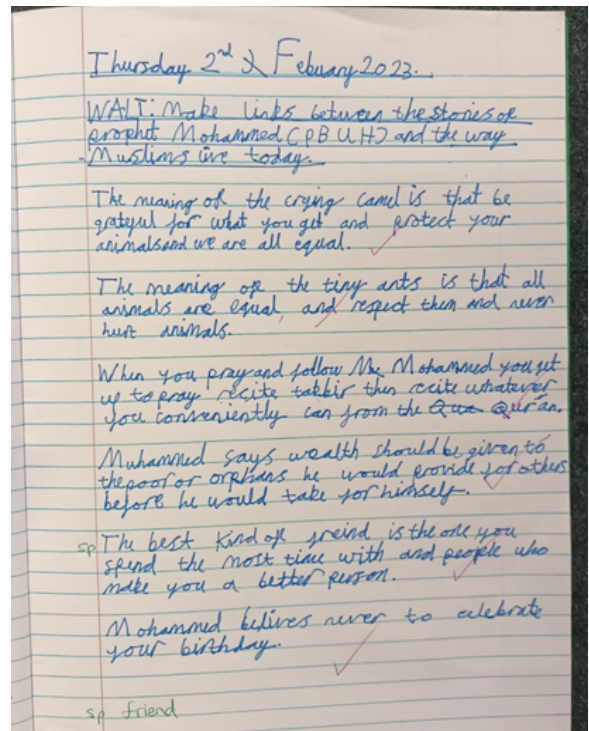 Thursday 2nd Febuary 2023.
WALT: Make links between the stories of
prophit Mohammed (PBUH) and the way
Muslims live today.
The meaning of the crying camel is that be
grateful for what you get and protect your
animals and we are all equal.
The meaning of the tiny ants is that all
animals are equal, and respect them and never
hurt animals.
When you pray and follow Mohammed you get
up to pray recite takbir then recite whatever
you conveniently can from the Qur'an.
Muhammed says wealth should be given to
the poor or orphans he would provide for others
before he would take for himself.
sp The best kind of freind is the one you
spend the most time with and people who
make you a better person.
Mohammed belives never to celebrate
your birthday.
sp friend